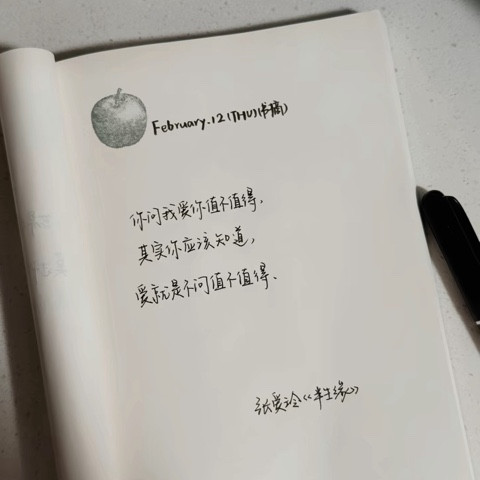 February.12(THU)(书摘)
你问我爱你值不值得,
其实你应该知道,
爱就是不问值不值得、
张爱玲《半生缘》